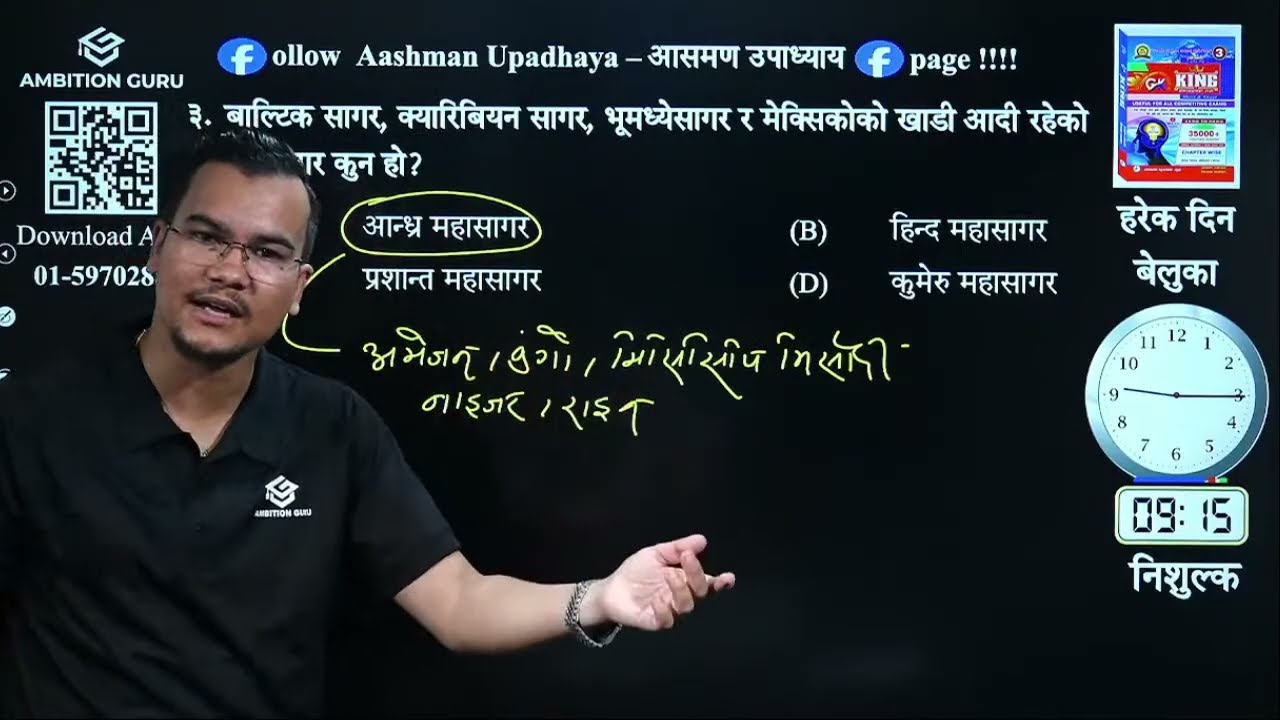 AMBITION GURU
follow Aashman Upadhaya – आसमण उपाध्याय f page !!!!
३. बाल्टिक सागर, क्यारिबियन सागर, भूमध्येसागर र मेक्सिकोको खाडी आदी रहेको
कुन हो?
आन्ध्र महासागर
(B) हिन्द महासागर
प्रशान्त महासागर
(D) कुमेरु महासागर
Download A
01-597028
अमेजन, मिसिसिपि मिसौरी
नाइजर, राइन
3
GK KING
USEFUL FOR ALL COMPETITIVE EXAMS
35000+
CHAPTER WISE
हरेक दिन
बेलुका
12
1
2
3
4
5
6
7
8
9
10
11
09:15
निशुल्क
AMBITION GURU